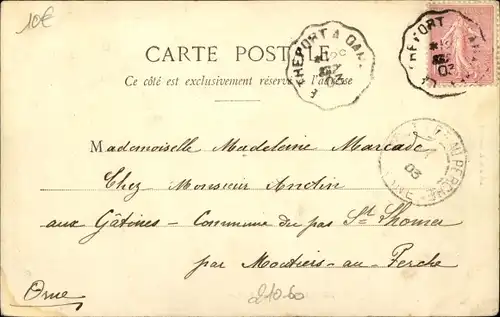 10€
CARTE POSTALE
Ce côté est exclusivement réservé à l'adresse
E TRÉPORT A
03
TRÉPORT
03
PERCHE
03
Mademoiselle Madeleine Marcade
Chez Monsieur Anctin
aux Gâtines – Commune du pas St Thomer
par Moutiers-au-Perche
Orne
21050